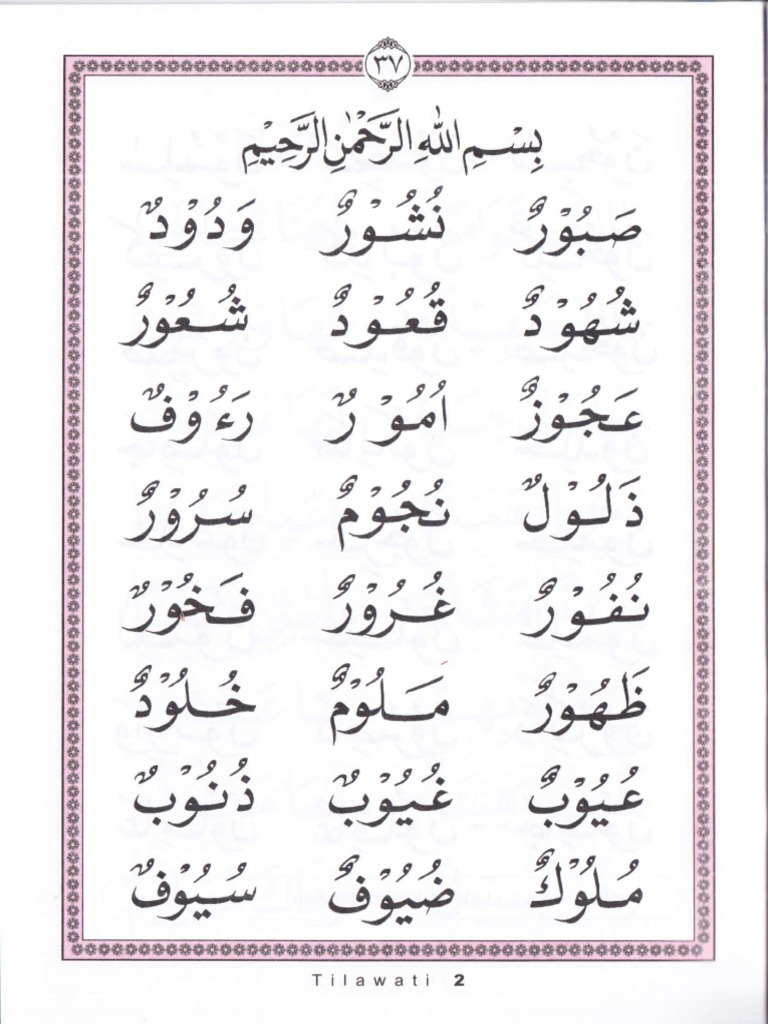 ٣٧
بِسْمِ اللهِ الرَّحْمٰنِ الرَّحِيْمِ
صَبُوْرٌ نُشُوْرٌ وَدُوْدٌ
شُهُوْدٌ قُعُوْدٌ شُعُوْرٌ
عَجُوْزٌ اُمُوْرٌ رَءُوْفٌ
ذَلُوْلٌ نُجُوْمٌ سُرُوْرٌ
نُفُوْرٌ غُرُوْرٌ فَخُوْرٌ
ظَهُوْرٌ مَلُوْمٌ خُلُوْدٌ
عُيُوْبٌ غُيُوْبٌ ذُنُوْبٌ
مُلُوْكٌ ضُيُوْفٌ سُيُوْفٌ
Tilawati 2